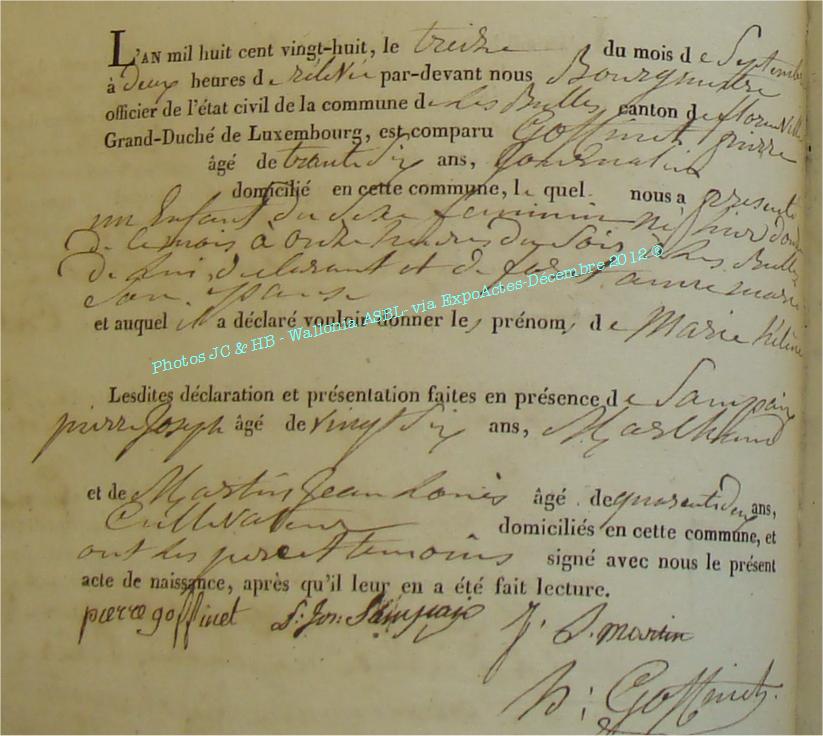 L'AN mil huit cent vingt-huit, le treize du mois de Septembre
à deux heures de relevée par-devant nous Bourgmestre
officier de l'état civil de la commune de Les Bulles canton de florenville
Grand-Duché de Luxembourg, est comparu Goffinet pierre
âgé de trente Six ans,
domicilié en cette commune, le quel nous a presenté
un Enfant du Sexe feminin né hier douze
de ce mois à onze heures du Soir à Les Bulles
de Lui, declarant et de anne marie
Son Epouse
et auquel il a déclaré vouloir donner les prénoms de Marie héléne
Photos JC & HB - Wallonia ASBL- via ExpoActes-Décembre 2012 ©
Lesdites déclaration et présentation faites en présence de Sampaix
pierre Joseph âgé de vingt Six ans, Marechand
et de Martin Jean Louis âgé de quarente deux ans,
Cultivateur domiciliés en cette commune, et
ont les pere et temoins signé avec nous le présent
acte de naissance, après qu'il leur en a été fait lecture.
pierre goffinet P: Jos: Sampaix J. L. martin
h: Goffinet